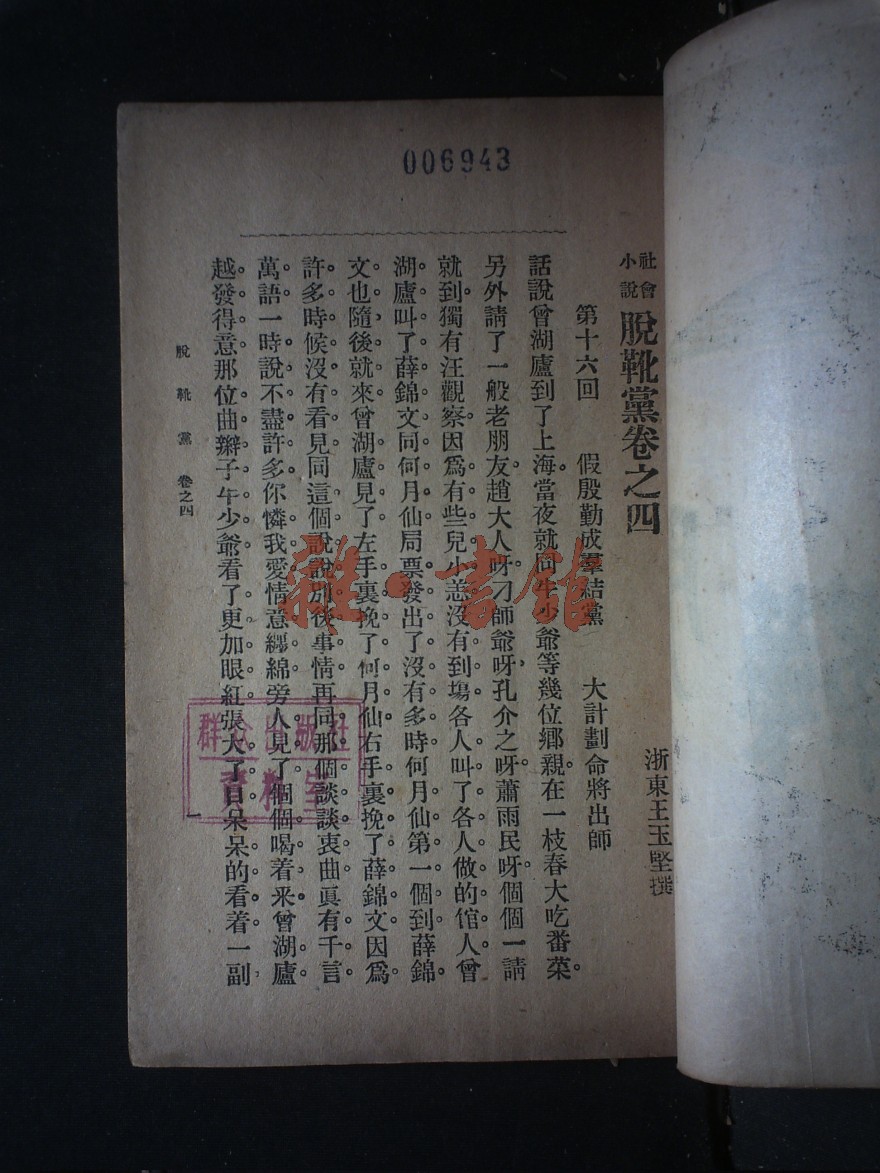 006943
社會小說 脫靴黨卷之四
浙東王玉堅撰
第十六回 假殷勤成羣結黨 大計劃命將出師
話說曾湖廬到了上海。當夜就同牛少爺等幾位鄉親。在一枝春大吃番菜。
另外請了一般老朋友趙大人呀刁師爺呀孔介之呀蕭雨民呀個個一請
就到。獨有汪觀察因爲有些兒小恙沒有到塲各人叫了各人做的倌人。曾
湖廬。叫了薛錦文同何月仙局票發出了。沒有多時何月仙第一個到薛錦。
文。也隨後就來曾湖廬見了左手裏挽了何月仙右手裏挽了薛錦文因爲。
許多時候沒有看見同這個說說別後事情再同那個談談衷曲眞有千言。
萬語一時說不盡許多你憐我愛情意纏綿旁人見了個個喝着釆。曾湖廬
越發得意那位曲辮子牛少爺看了更加眼紅張大了目呆呆的看着一副
脫靴黨 卷之四
一
群众出版社
資料室
雜·書館